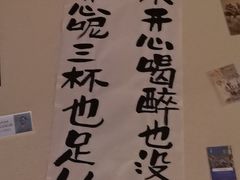 开心喝醉也没
心呢三杯也足